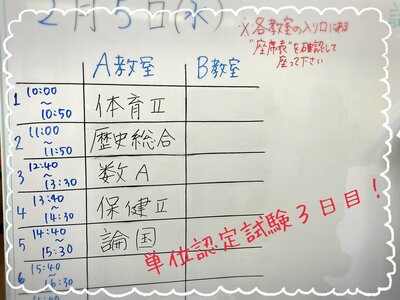 2月5日(水)
※各教室の入り口にある
"座席表"を確認して
座って下さい
A教室 B教室
1 10:00 〜 10:50 体育Ⅱ
2 11:00 〜 11:50 歴史総合
3 12:40 〜 13:30 数A
4 13:40 〜 14:30 保健Ⅱ
5 14:40 〜 15:30 論国
6 15:40 〜 16:30
単位認定試験3日目!